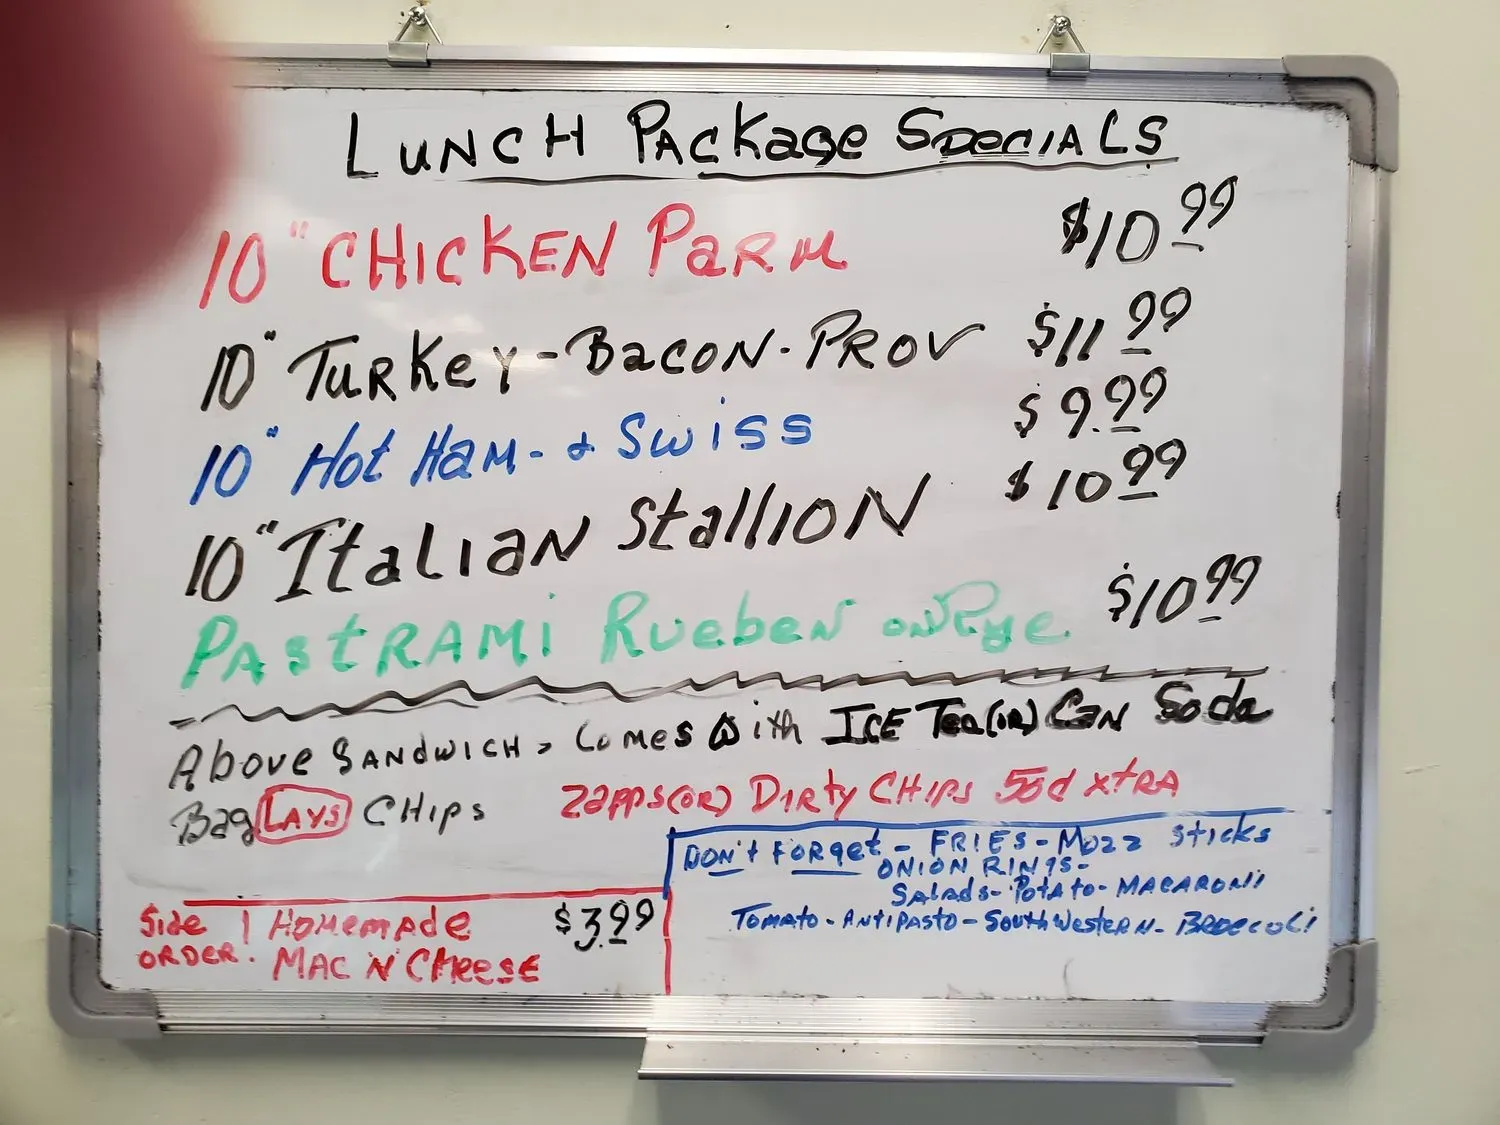 LUNCH Package SpeciALS
10" CHICKEN PaRM $10.99
10" TuRKey-BacoN-PROV $11.99
10" Hot HaM-& Swiss $9.99
10" ItaLiaN StallioN $10.99
PAstRAMi RuebeN oN Rye $10.99
Above SANdwicH, Comes With ICE Tea(OR) CaN Soda
Bag LAYS CHips Zapps(OR) DiRty CHips 55¢ XtRA
DoN't FoRget - FRIES-Mozz sticks
ONION RINgs-
Salads-Potato-MACARONi
Tomato-ANtiPASto-SouthwesteRN-BROccoli
Side 1 Homemade $3.99
ORDER. MAC N CHeese